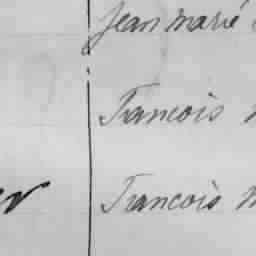 Jean Marie
Francois
Francois